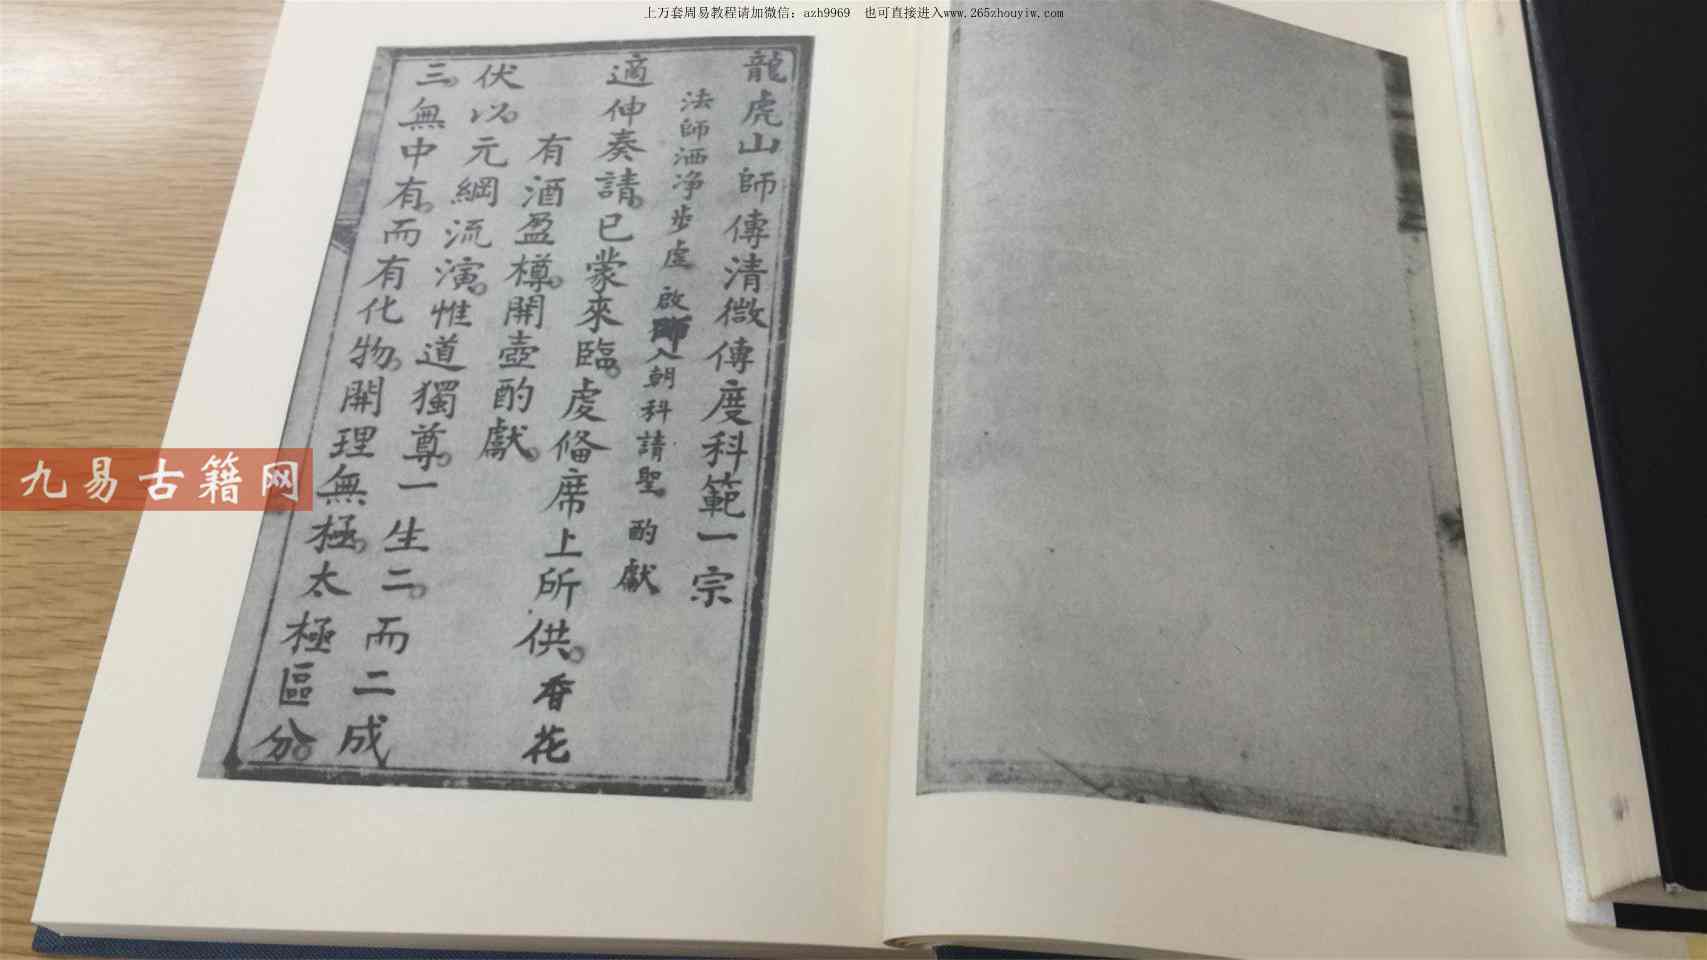 上万套周易教程请加微信：azh9969　也可直接进入www.265zhouyiw.com
龍虎山師傳清微傳度科範一宗
法師洒净步虚　啟師入朝科請聖　酌獻
適伸奏請。已蒙來臨。虔俻席上所供。香花
有酒盈樽。開壺酌獻。
伏以。元綱流演。惟道獨尊。一生二。而二成
三。無中有。而有化物。開理無極。太極區分。
九易古籍网